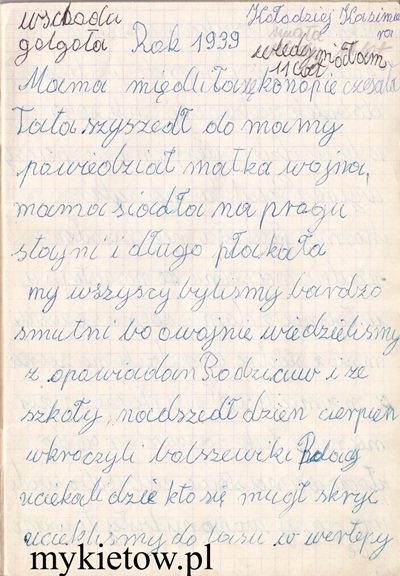 wschodu
golgota Rok 1939
Kołodziej Kazimie
ra
wtedy miałam
11 lat
Mama międliła konopie czesała
Tata szyszedł do mamy
powiedział matka wojna,
mama siadła na progu
stajni i długo płakała
my wszyscy byliśmy bardzo
smutni bo owojnie wiedzieliśmy
z opowiadań Rodziców i ze
szkoły, nadszedł dzień cierpień
wkroczyli bolszewiki
uciekali dzie kto się mugł skryć
uciekliśmy do lasu w wertepy
mykietow.pl